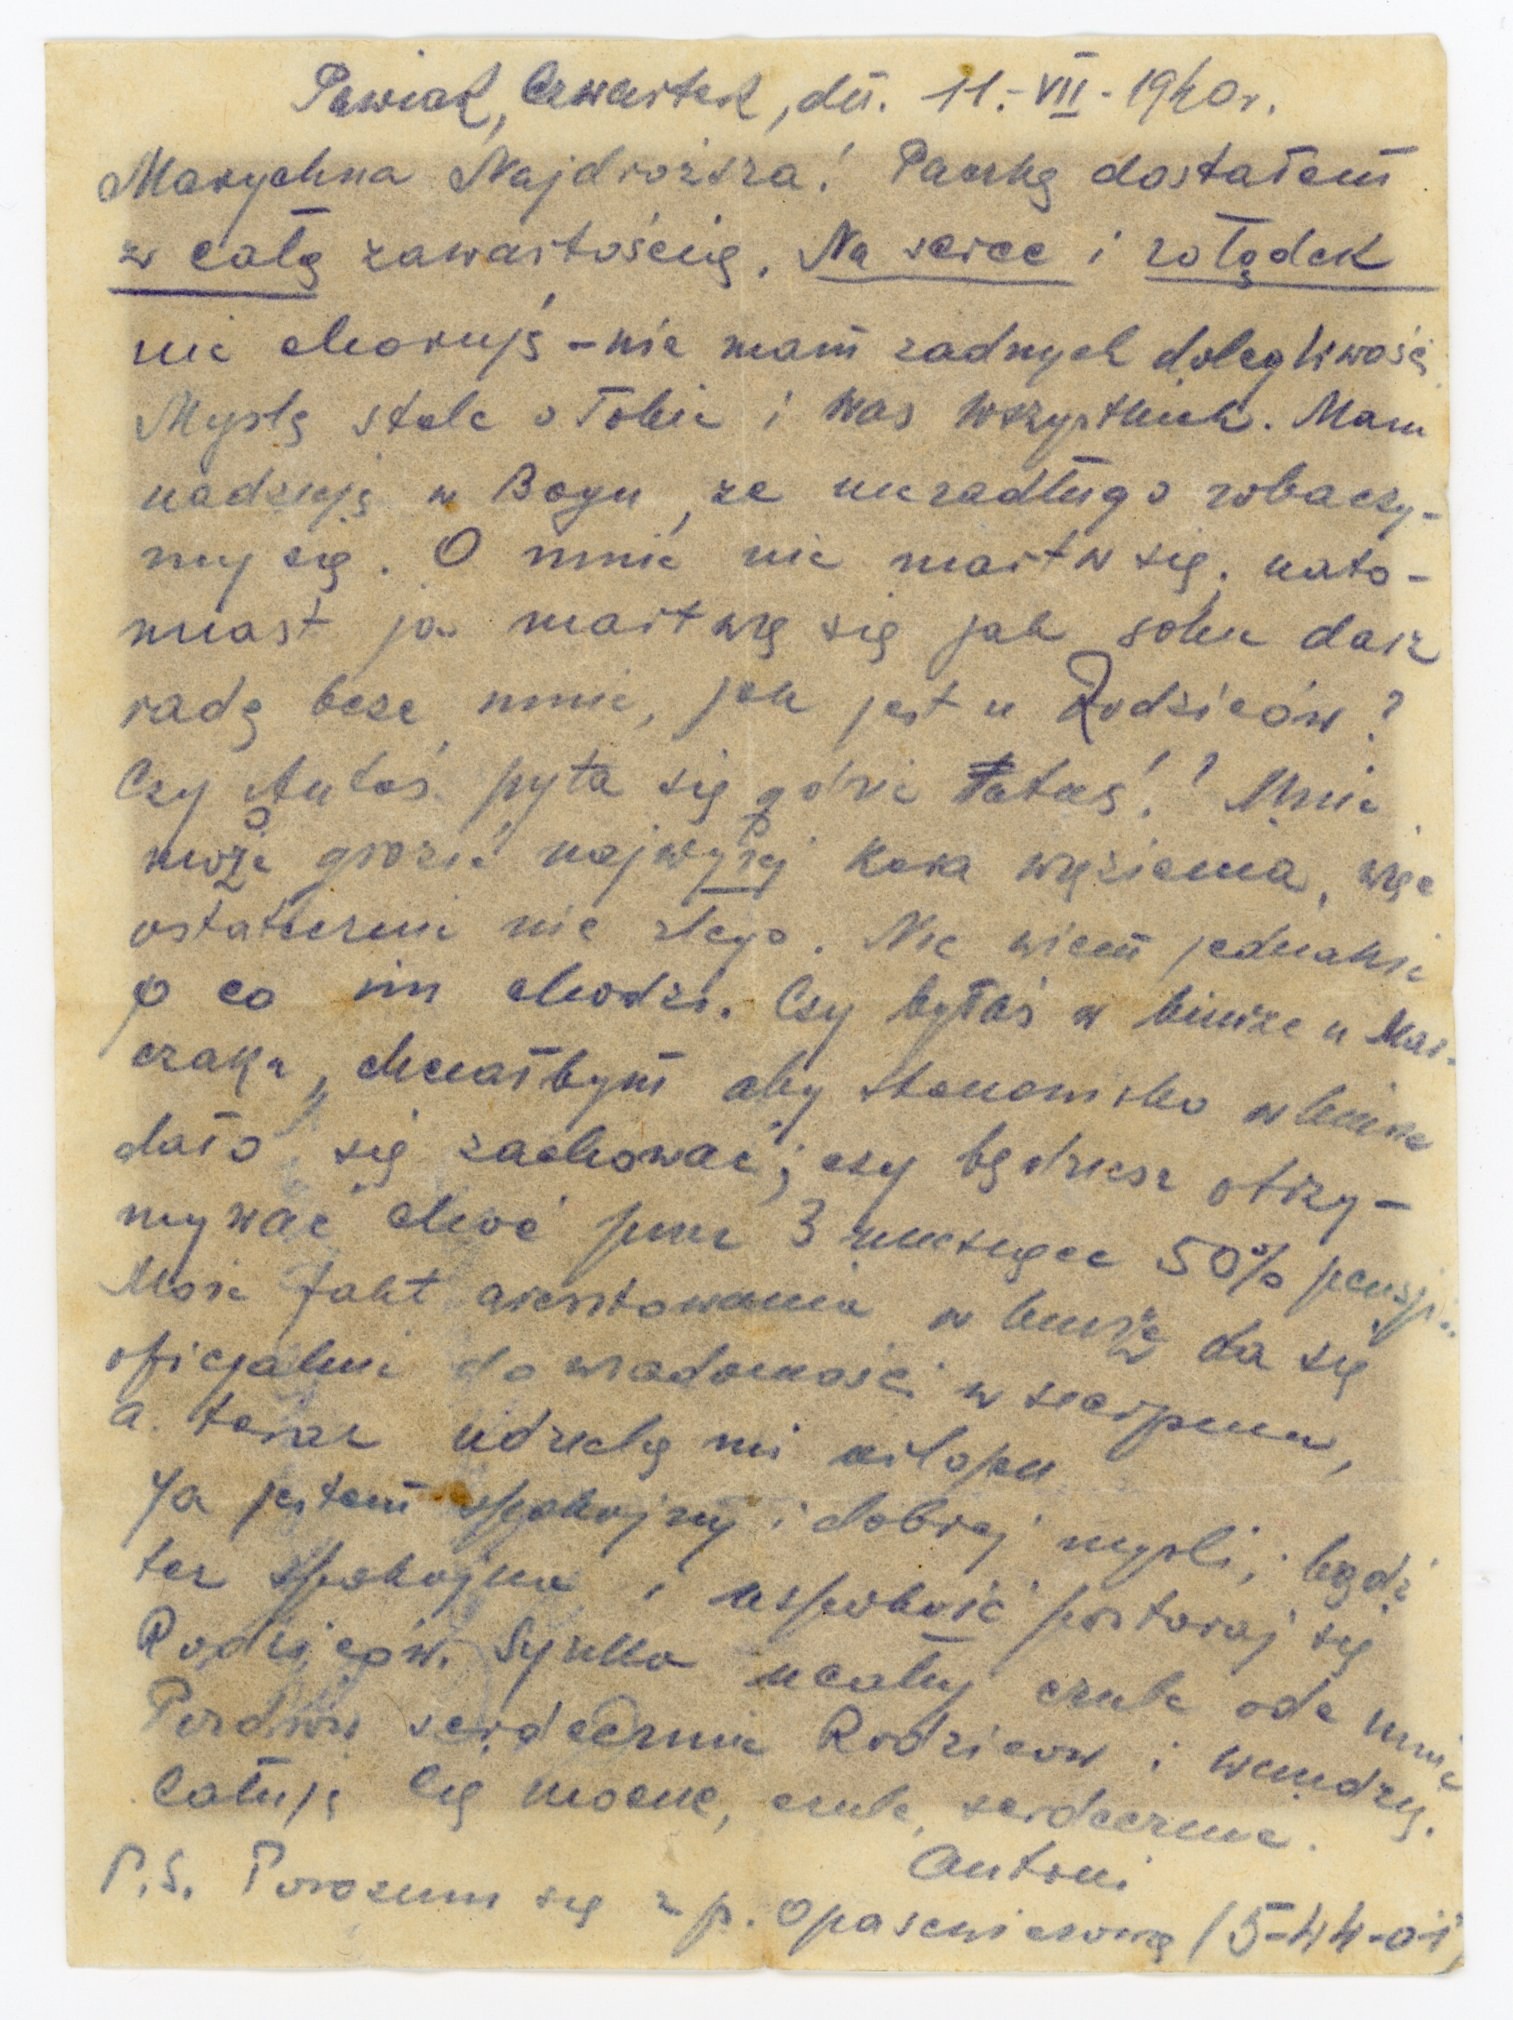 Pawiak, Czwartek, dń. 11.-VII-1940r.
Marychna Najdroższa! Paczkę dostałem
z całą zawartością. Na serce i żołądek
nie choruję - nie mam żadnych dolegliwości.
Myślę stale o Tobie i Was wszystkich. Mam
nadzieję w Bogu, że niezadługo zobaczy-
my się. O mnie nie martw się, nato-
miast ja martwię się jak sobie dasz
radę beze mnie, jak jest u Rodziców?
Czy Antoś pyta się gdzie Tatuś!? Mnie
może grozić najwyżej kara więzienia, więc
ostatecznie nic złego. Nie wiem jednakże
o co im chodzi. Czy byłaś w biurze u Mar-
czaka, chciałbym aby stanowisko w biurze
dało się zachować; czy będziesz otrzy-
mywać choć przez 3 miesiące 50% pensji.
Może fakt aresztowania w biurze da się
oficjalnie do wiadomości w sierpniu,
a teraz udzielą mi urlopu
Ja jestem spokojny i dobrej myśli, bądź
też spokojna i uspokoić postaraj się
Rodziców. Synka ucałuj czule ode mnie
Pozdrów serdecznie Rodziców i wendzą.
Całuję Cię mocno, czule, serdecznie.
Antoni
P.S. Porozum się z p. Opasewiczową (5-44-01)